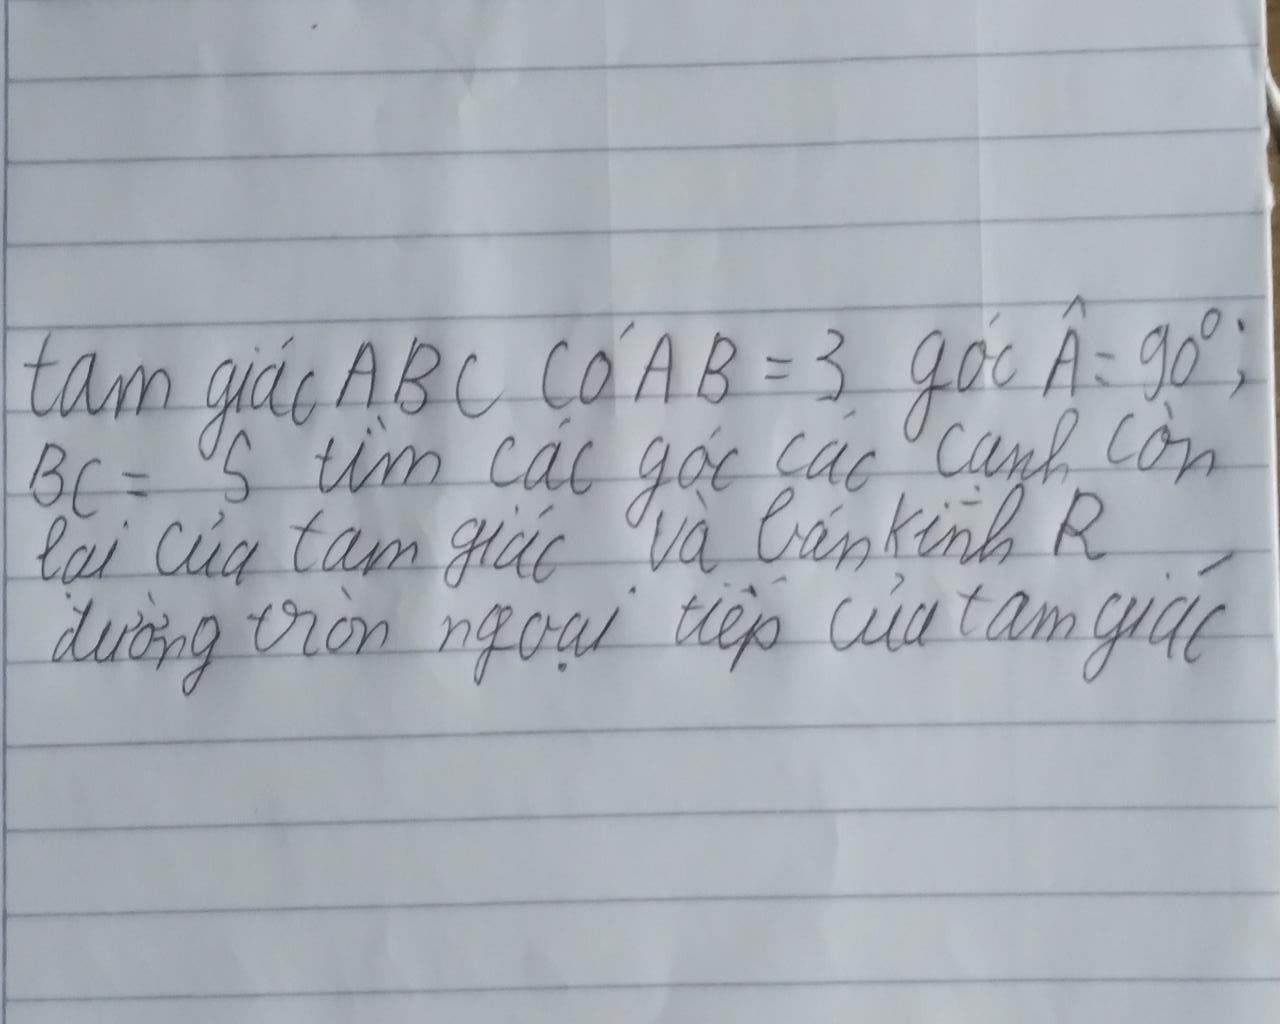 tam giác ABC có AB = 3 góc Â = 90°;
BC = 5 tìm các góc các cạnh còn
lại của tam giác và bán kính R
đường tròn ngoại tiếp của tam giác